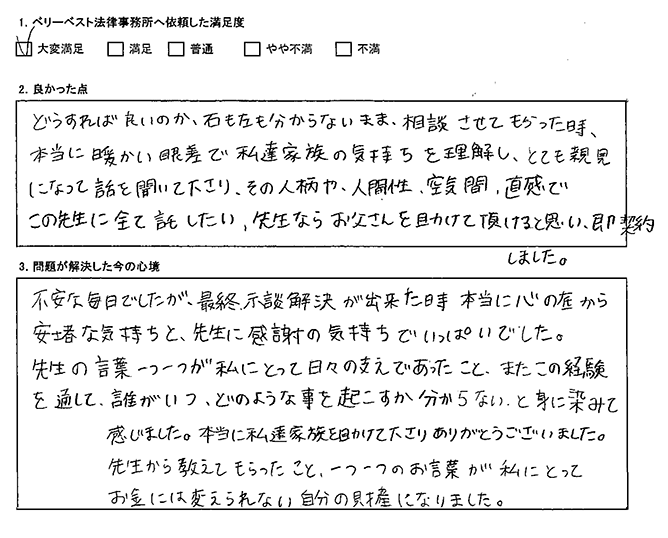 1. ベリーベスト法律事務所へ依頼した満足度
大変満足 満足 普通 やや不満 不満
2. 良かった点
どうすれば良いのか、右も左も分からないまま、相談させてもらった時、
本当に暖かい眼差で私達家族の気持ちを理解し、とても親見
になって話を聞いて下さり、その人柄や、人間性、空気間、直感で
この先生に全て託したい、先生ならお父さんを助けて頂けると思い、即契約
しました。
3. 問題が解決した今の心境
不安な毎日でしたが、最終示談解決が出来た時 本当に心の底から
安堵な気持ちと、先生に感謝の気持ちでいっぱいでした。
先生の言葉一つ一つが私にとって日々の支えであったこと、またこの経験
を通して、誰がいつ、どのような事を起こすか分からない、と身に染みて
感じました。本当に私達家族を助けて下さりありがとうございました。
先生から教えてもらったこと、一つ一つのお言葉が私にとって
お金には変えられない自分の財産になりました。